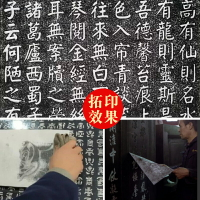 高有仙則名水
有龍則靈斯是
吾德馨苔痕上
色入帘青談
往來無白
琴閱金經無絲
耳無案牘之
諸葛廬西蜀子
子云何陋之有
拓印
效果